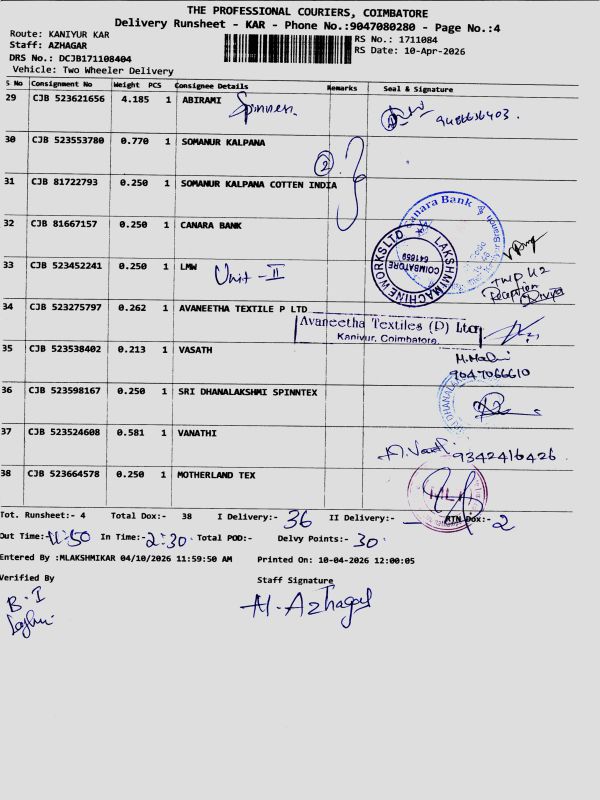 THE PROFESSIONAL COURIERS, COIMBATORE
Delivery Runsheet - KAR - Phone No.:9047080280 - Page No.:4
Route: KANIYUR KAR
Staff: AZHAGAR
DRS No.: DCJB171108404
Vehicle: Two Wheeler Delivery
RS No.: 1711084
RS Date: 10-Apr-2026
S No Consignment No Weight PCS Consignee Details Remarks Seal & Signature
29 CJB 523621656 4.185 1 ABIRAMI Spinners 9486636403.
30 CJB 523553780 0.770 1 SOMANUR KALPANA
2
31 CJB 81722793 0.250 1 SOMANUR KALPANA COTTEN INDIA
32 CJB 81667157 0.250 1 CANARA BANK
Canara Bank
33 CJB 523452241 0.250 1 LMW Unit-II
LAKSHMI MACHINE WORKS LTD
COIMBATORE
641659
Reception Divya
34 CJB 523275797 0.262 1 AVANEETHA TEXTILE P LTD
Avaneetha Textiles (P) Ltd
Kaniyur, Coimbatore.
35 CJB 523538402 0.213 1 VASATH
9047066610
36 CJB 523598167 0.250 1 SRI DHANALAKSHMI SPINNTEX
37 CJB 523524608 0.581 1 VANATHI
9342416426
38 CJB 523664578 0.250 1 MOTHERLAND TEX
Tot. Runsheet:- 4 Total Dox:- 38 I Delivery:- 36 II Delivery:- — RTN Dox:- 2
Out Time:- 11:50 In Time:- 2:30 Total POD:- Delvy Points:- 30
Entered By :MLAKSHMIKAR 04/10/2026 11:59:50 AM Printed On: 10-04-2026 12:00:05
Verified By Staff Signature
B.I
M. Azhagar